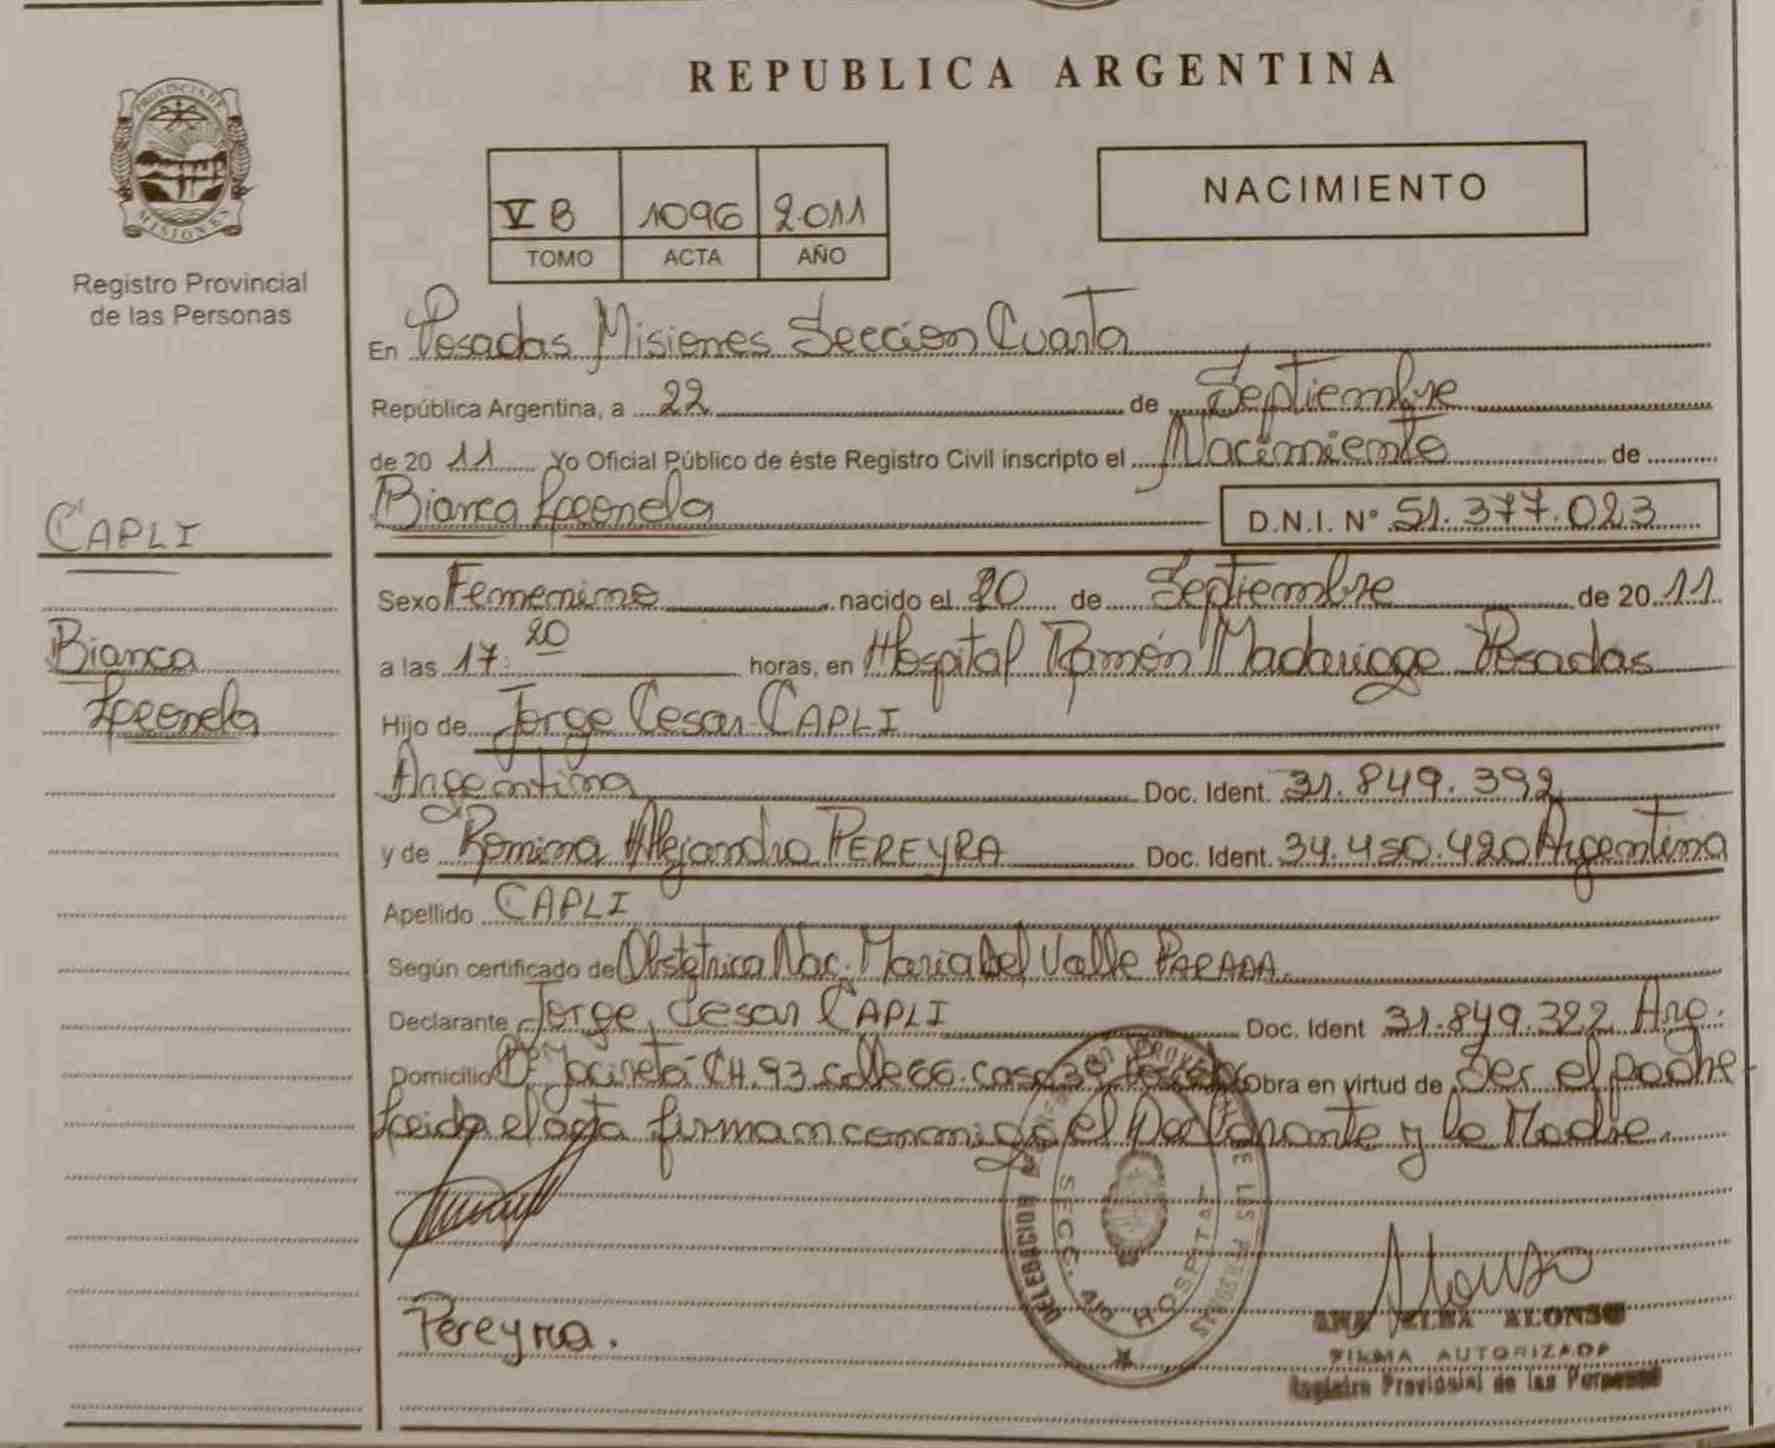 REPUBLICA ARGENTINA
PROVINCIA DE
MISIONES
Registro Provincial
de las Personas
V B 1096 2011
TOMO ACTA AÑO
NACIMIENTO
En Posadas Misiones Seccion Cuarta
República Argentina, a 22 de Septiembre
de 20 11 Yo Oficial Público de éste Registro Civil inscripto el Nacimiento de
CAPLI
Bianca Leonela
Bianca D.N.I. N° 51.377.023
Sexo Femenino nacido el 20 de Septiembre de 20 11
a las 17:20 horas, en Hospital Ramón Madariaga Posadas
Hijo de Jorge Cesar CAPLI
Argentina Doc. Ident. 31.849.392
y de Romina Alejandra PEREYRA Doc. Ident. 34.450.420 Argentina
Apellido CAPLI
Según certificado de Obstétrica Nac. Maria Del Valle PARADA.
Declarante Jorge Cesar CAPLI Doc. Ident 31.849.392 Arg.
Domicilio CH. 93 calle 66 casa Obra en virtud de Ser el padre
Leida el acta firman conmigo el Declarante y la Madre.
DELEGACION
SECC. HOSPITAL
Pereyra.
Alonso
ANA ELBA ALONSO
FIRMA AUTORIZADA
Registro Provincial de las Personas